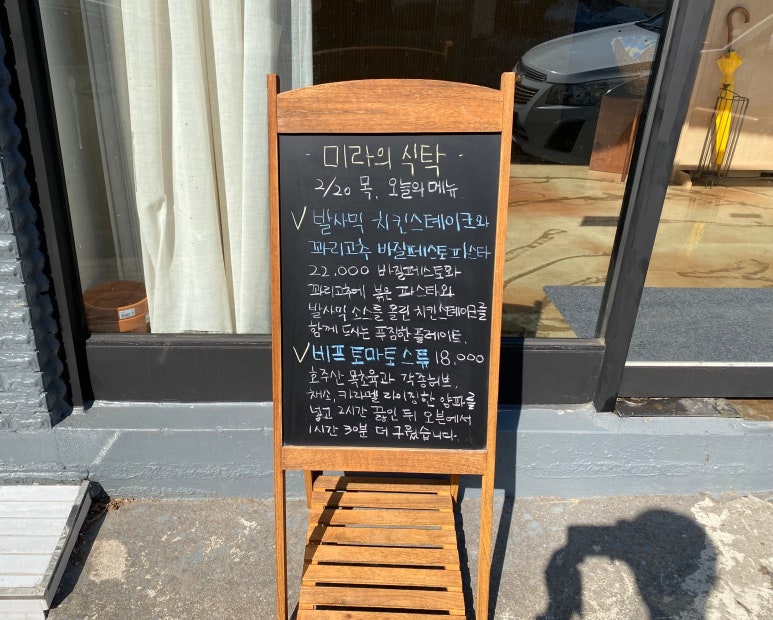 - 미라의 식탁 -
2/20 목. 오늘의 메뉴
✓ 발사믹 치킨스테이크와
꽈리고추 바질페스토파스타
22.000 바질페스토와
꽈리고추에 볶은 파스타와
발사믹 소스를 올린 치킨스테이크를
함께 드시는 푸짐한 플레이트.
✓ 비프토마토스튜 18.000
호주산 목초육과 각종허브,
채소, 카라멜라이징한 양파를
넣고 2시간 끓인 뒤 오븐에서
1시간 30분 더 구웠습니다.